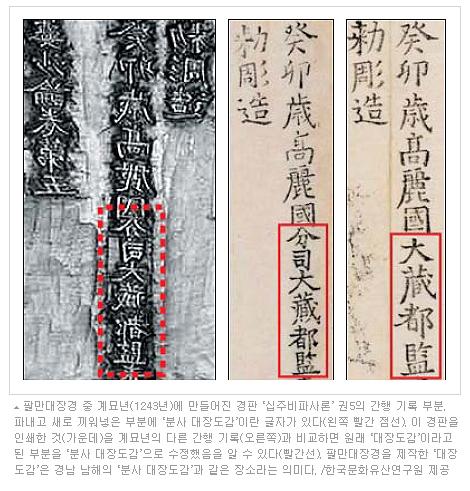 婆沙論卷第五
癸卯歳高麗國分司大藏都監
勅彫造
癸卯歳高麗國分司大藏都監
勅彫造
癸卯歳高麗國大藏都監
勅彫造
▲ 팔만대장경 중 계묘년(1243년)에 만들어진 경판 ‘십주비파사론’ 권5의 간행 기록 부분.
파내고 새로 끼워넣은 부분에 ‘분사 대장도감’이란 글자가 있다(왼쪽 빨간 점선). 이 경판을
인쇄한 것(가운데)을 계묘년의 다른 간행 기록(오른쪽)과 비교하면 원래 ‘대장도감’이라고
된 부분을 ‘분사 대장도감’으로 수정했음을 알 수 있다(빨간선). 팔만대장경을 제작한 ‘대장
도감’은 경남 남해의 ‘분사 대장도감’과 같은 장소라는 의미다. /한국문화유산연구원 제공